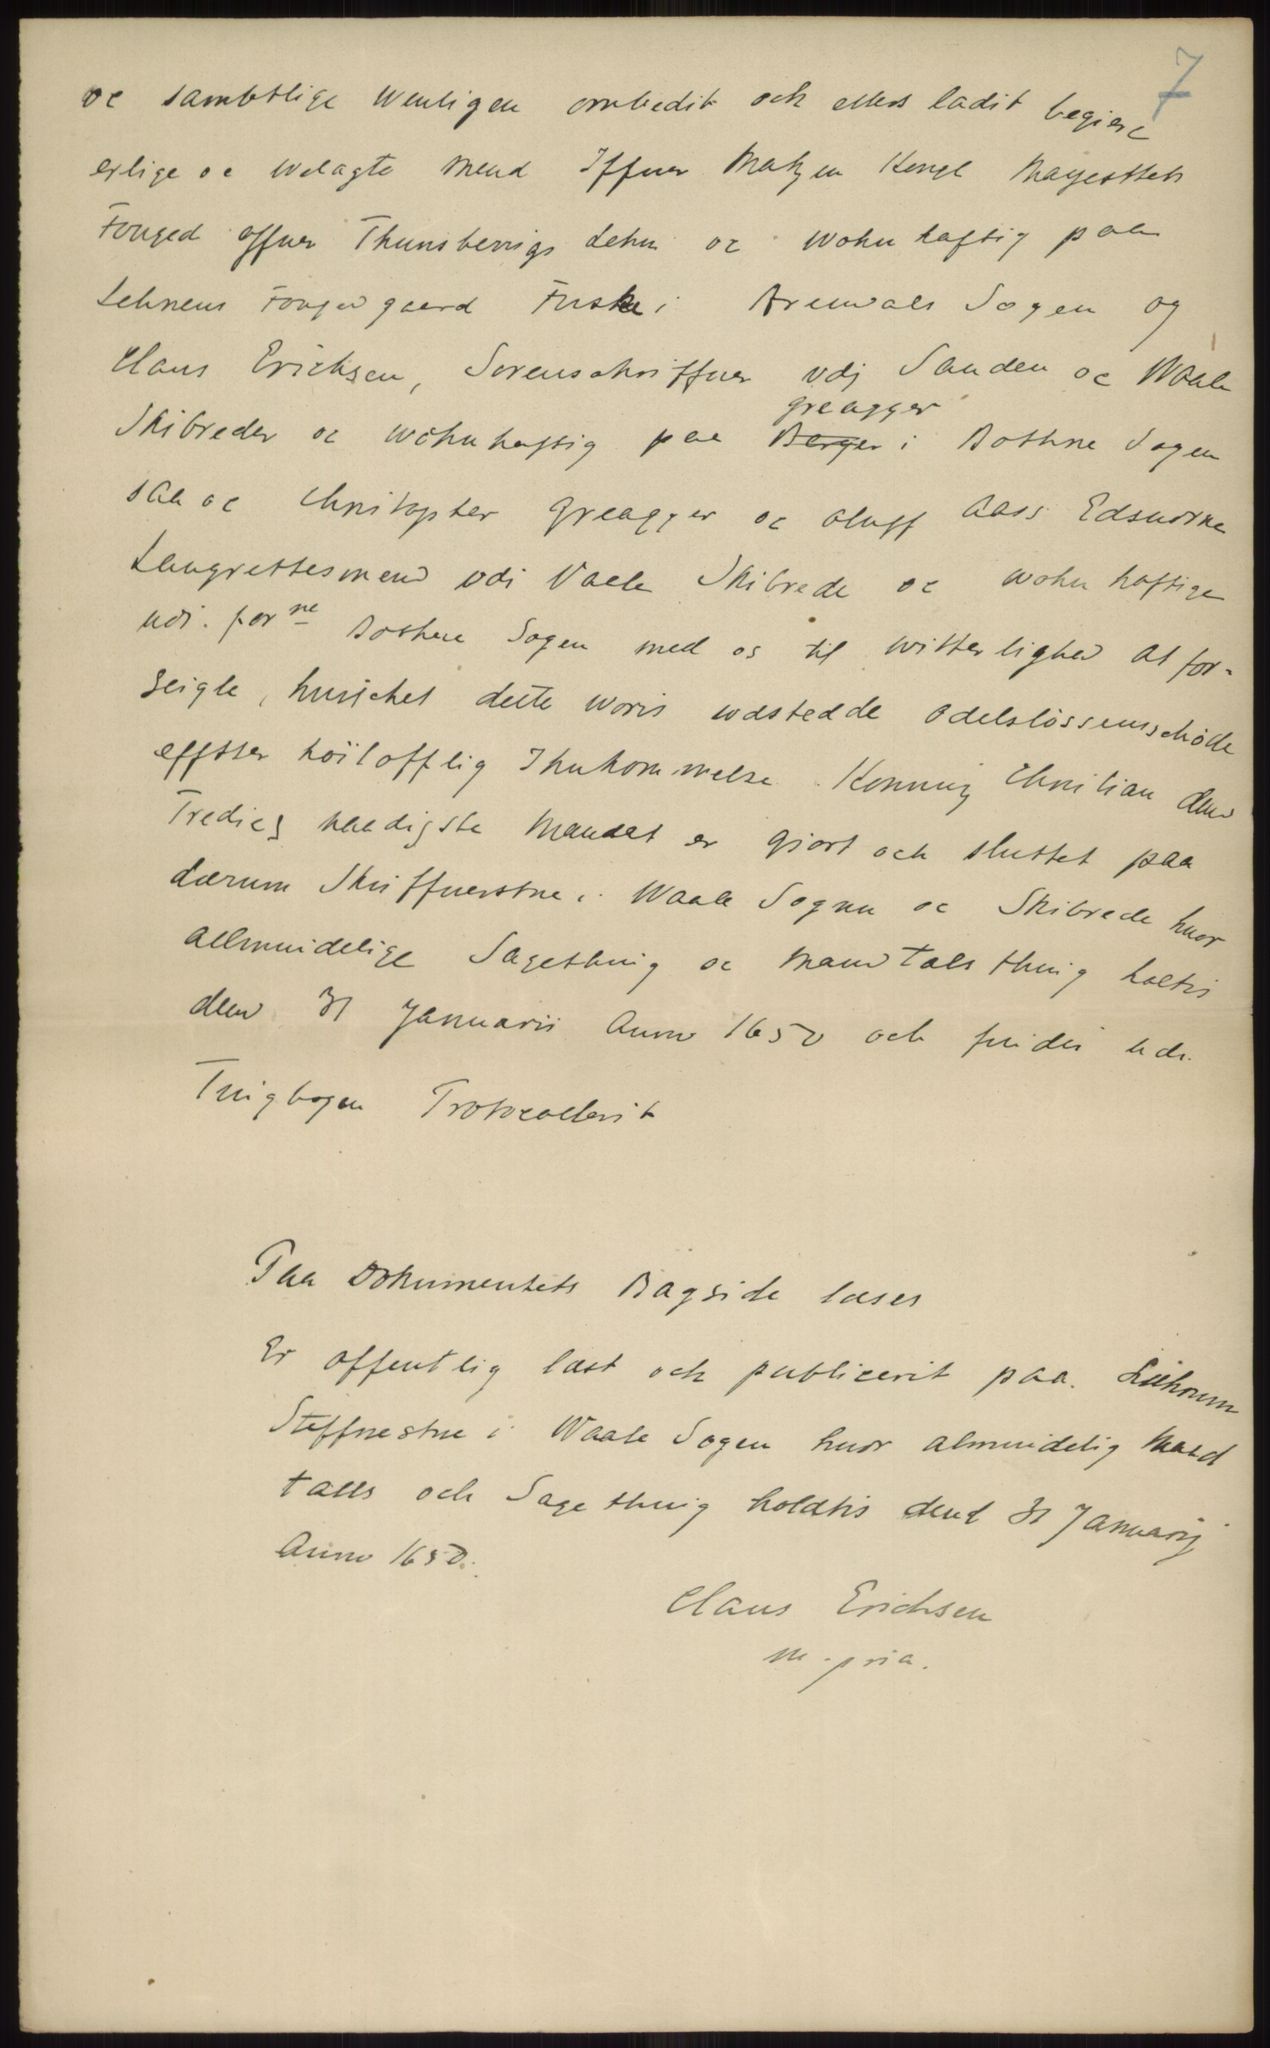 7
oc sambtlige Wenligen ombedit och ellers ladit begiere
erlige oc welagte Mend Iffuer Matzen Kongl Mayesttets
Fouged offuer Thunsbergs Lehn oc wohnhaftig paa
Lehnens Fougedgaard Fuske i Arenuals Sogen og
Claus Erichsen, Sorenschriffuer vdj Sanden oc Waale
greagger
Skibreder oc wohnhaftig paa Berger i Bothne Sogen
saa oc Christopher greagger oc Oluff Aass Edsuorne
Laugrettesmend vdi Vaale Skibrede oc wohnhaftige
udi forne Bothne Sogen med os til witterlighed at for-
seigle, huilchet dette woris udstedde Odelsløssensschøde
effter høilofflig Ihukommelse Konning Christian den
Tredies naadigste Mandat er giort och sluttet paa
Lærum Skiffuerstue i Waale Sognn oc Skibrede huor
allmindelige Sagething oc Mandtals thing holtis
den 31 Januarii Anno 1650 och findis udi
Tingbogen Protocollerit
Paa Dokumentets Bagside læses
Er offentlig læst och publicerit paa
Steffnestue i Waale Sogen huor almindelig Mand
talls och Sagething holdtis den 31 Januarij
Anno 1650.
Claus Erichsen
m. pria.